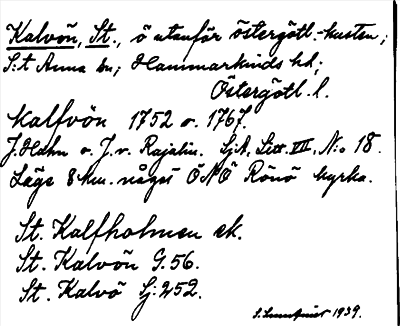 Kalvön, St., ö utanför Östergötl.-kusten;
S:t Anna sn; Hammarkinds hd;
Östergötl. l.
Kalfvön 1752 o. 1767.
J. Hahn o. J. v. Rajalin. Sj.A, Litt. VII, N:o 18.
Läge 8 km. något ÖNÖ Rönö kyrka.
St. Kalfholmen ek.
St. Kalvön G. 56.
St. Kalvö Sj: 252.
1939.